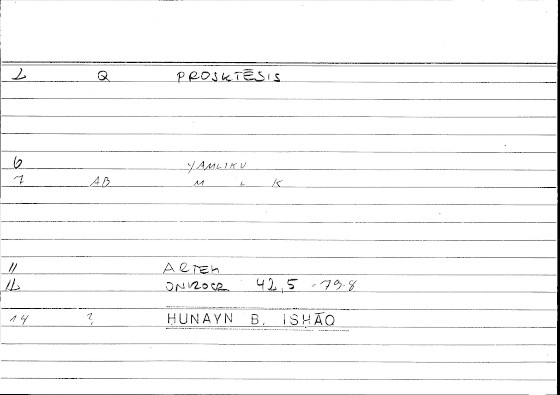 1 Q PROSKTĒSIS
6 YAMLIKU
7 AB M L K
11 ARTEM
12 ONIROCR 42,5 -79.8
14 ? HUNAYN B. ISḤĀQ